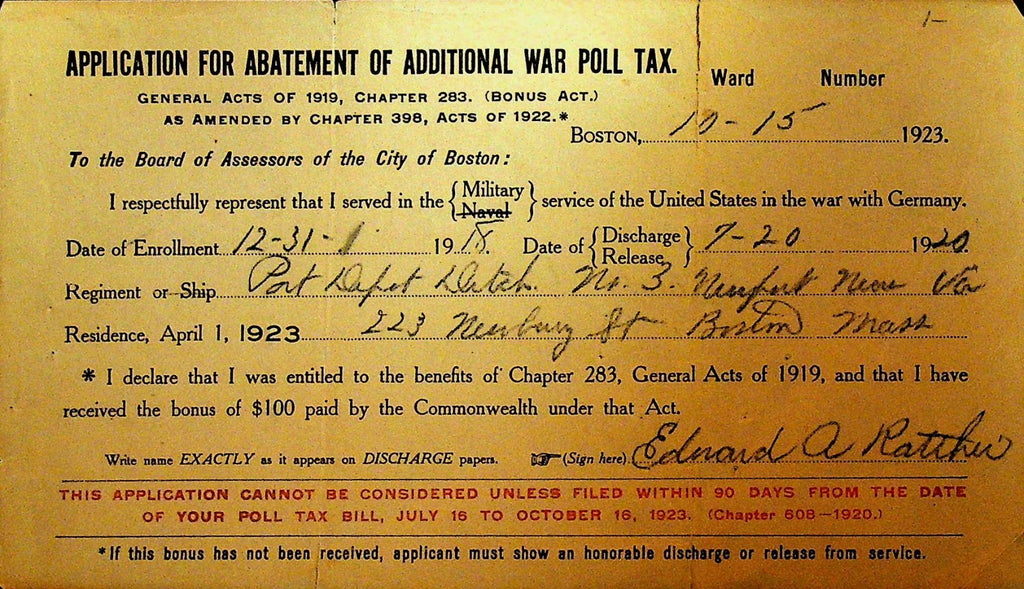 1-
APPLICATION FOR ABATEMENT OF ADDITIONAL WAR POLL TAX.
Ward Number
GENERAL ACTS OF 1919, CHAPTER 283. (BONUS ACT.)
AS AMENDED BY CHAPTER 398, ACTS OF 1922.*
BOSTON, 10-15 1923.
To the Board of Assessors of the City of Boston:
I respectfully represent that I served in the {Military Naval} service of the United States in the war with Germany.
Date of Enrollment 12-31-1 1918. Date of {Discharge Release} 7-20 1920.
Regiment or Ship Port Depot Detch. No. 3. Newport News Va
Residence, April 1, 1923 223 Newbury St Boston Mass
* I declare that I was entitled to the benefits of Chapter 283, General Acts of 1919, and that I have
received the bonus of $100 paid by the Commonwealth under that Act.
Write name EXACTLY as it appears on DISCHARGE papers. ☞ (Sign here) Edward A
THIS APPLICATION CANNOT BE CONSIDERED UNLESS FILED WITHIN 90 DAYS FROM THE DATE
OF YOUR POLL TAX BILL, JULY 16 TO OCTOBER 16, 1923. (Chapter 608—1920.)
*If this bonus has not been received, applicant must show an honorable discharge or release from service.